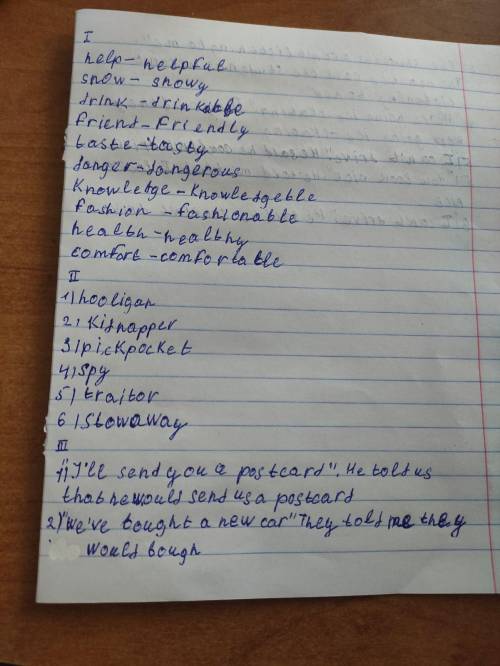 I
help - helpful
snow - snowy
drink - drinkable
friend - friendly
taste - tasty
danger - dangerous
knowledge - knowledgeble
fashion - fashionable
health - healthy
comfort - comfortable
II
1) hooligan
2) Kidnapper
3) pickpocket
4) spy
5) traitor
6) Stowaway
III
1) "I'll send you a postcard". He told us
that he would send us a postcard
2) "We've bought a new car" They told me they
would bough